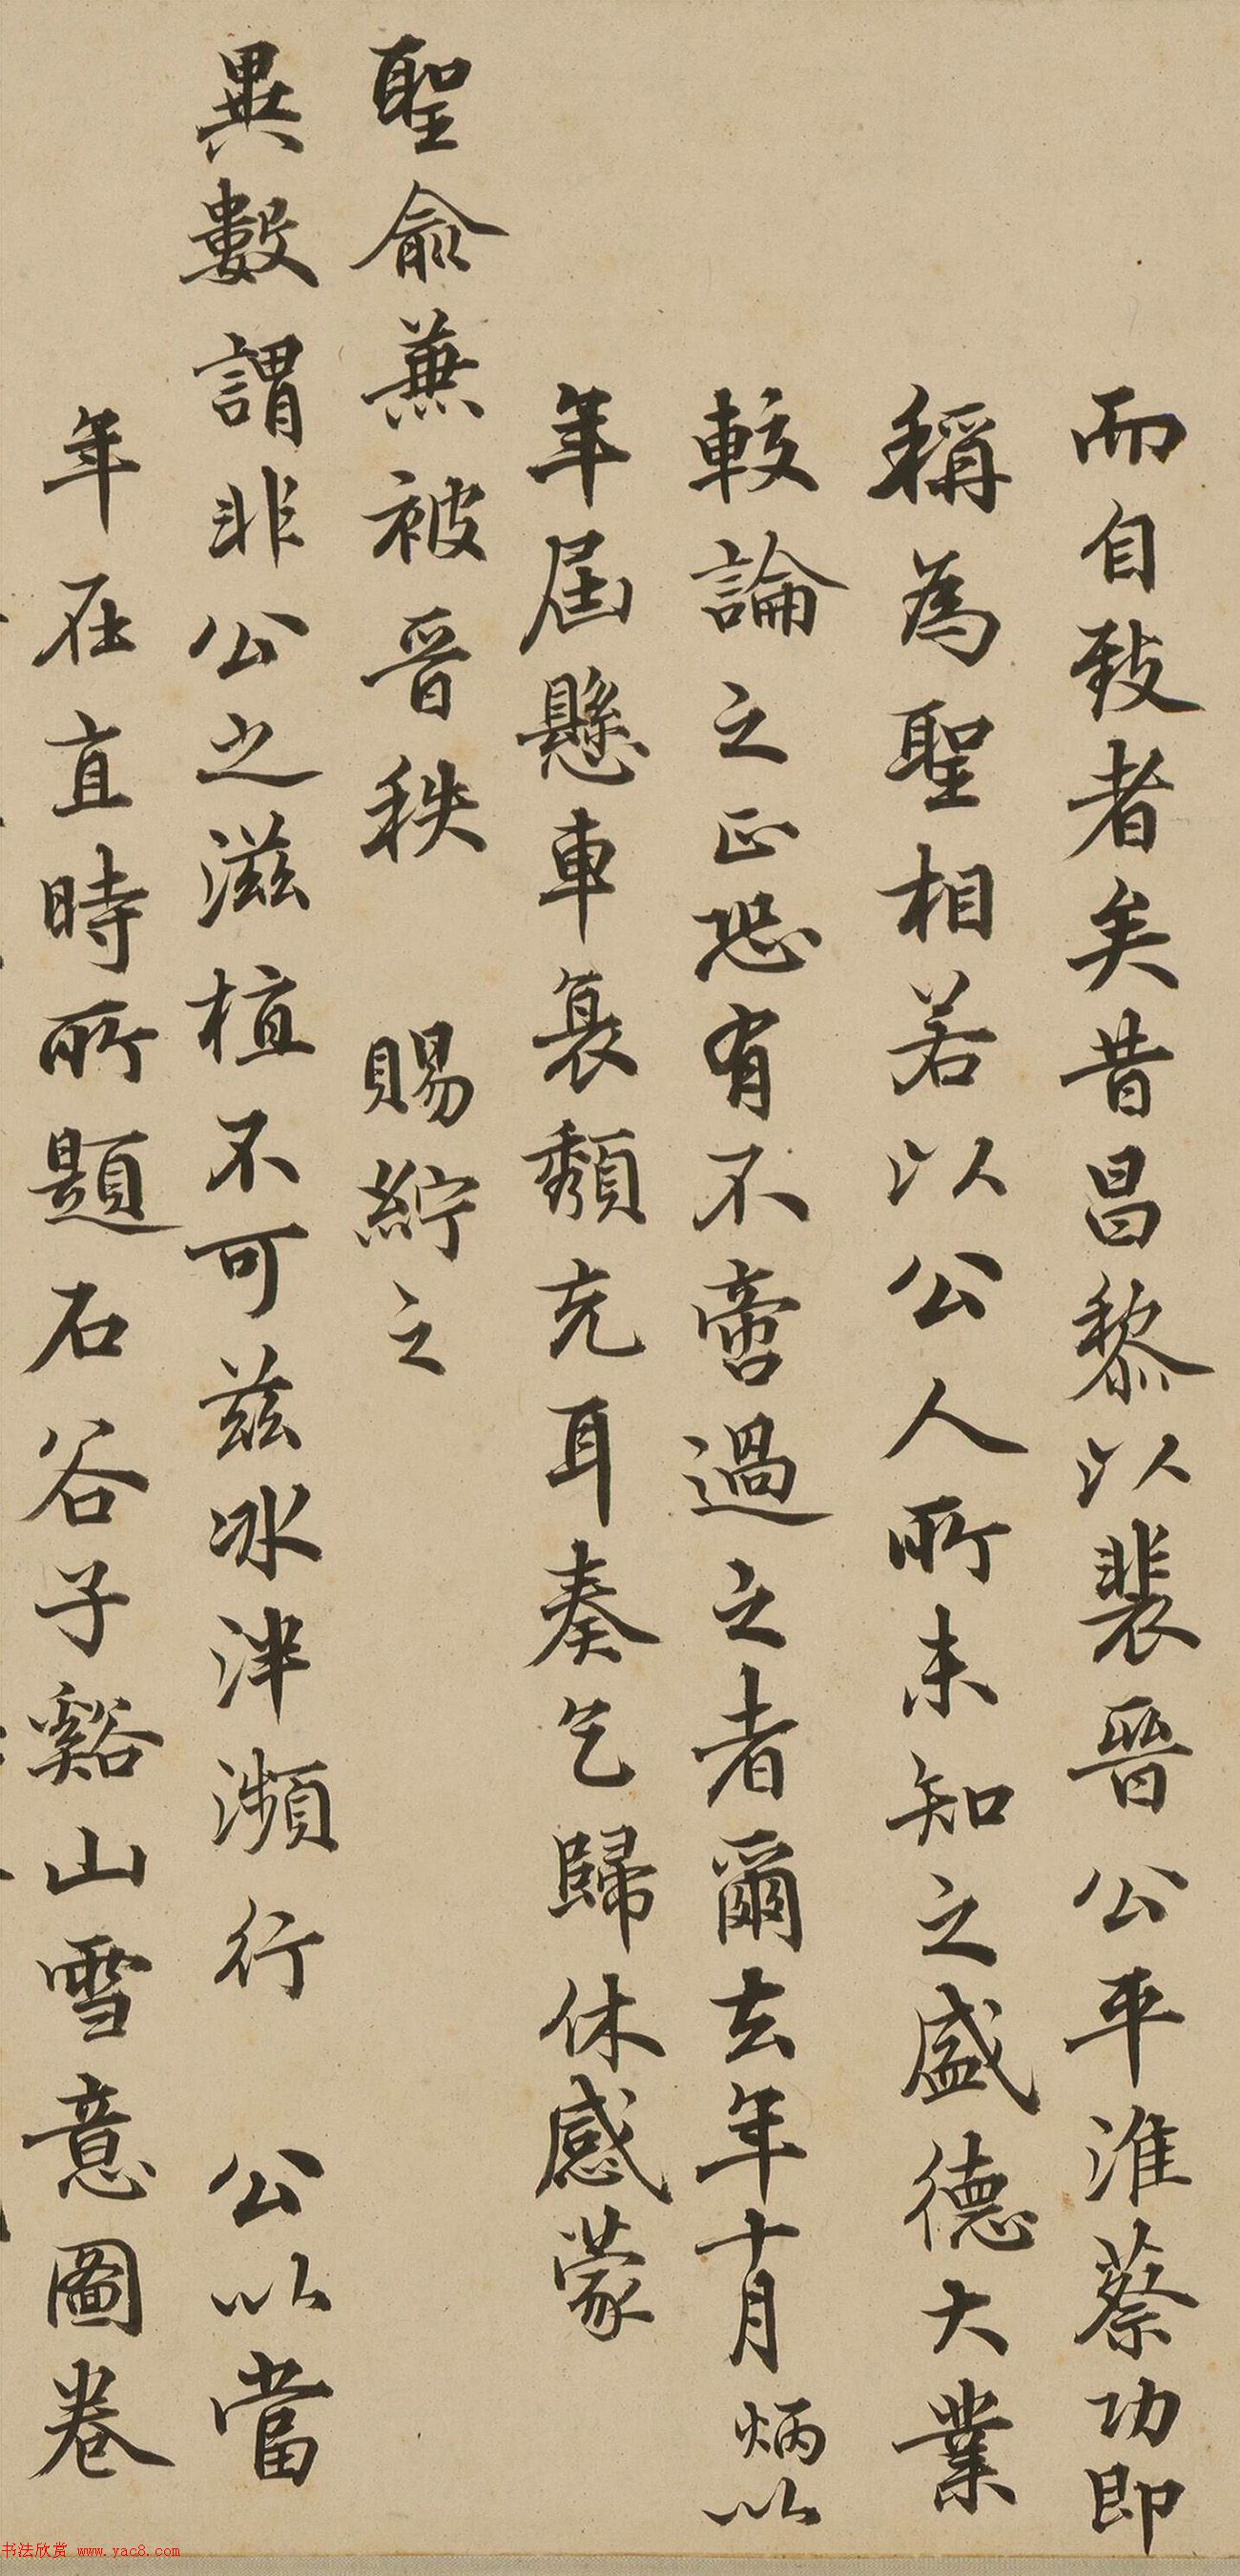 而自致者矣昔昌黎以裴晉公平淮蔡功即
稱為聖相若以公人所未知之盛德大業
較論之正恐有不啻過之者爾去年十月炳以
年屆懸車衰頹充耳奏乞歸休感蒙
聖俞兼被晉秩 賜紵之
異數謂非公之滋植不可茲冰泮瀕行 公以當
年在直時所題石谷子谿山雪意圖卷
书法欣赏 www.yac8.com